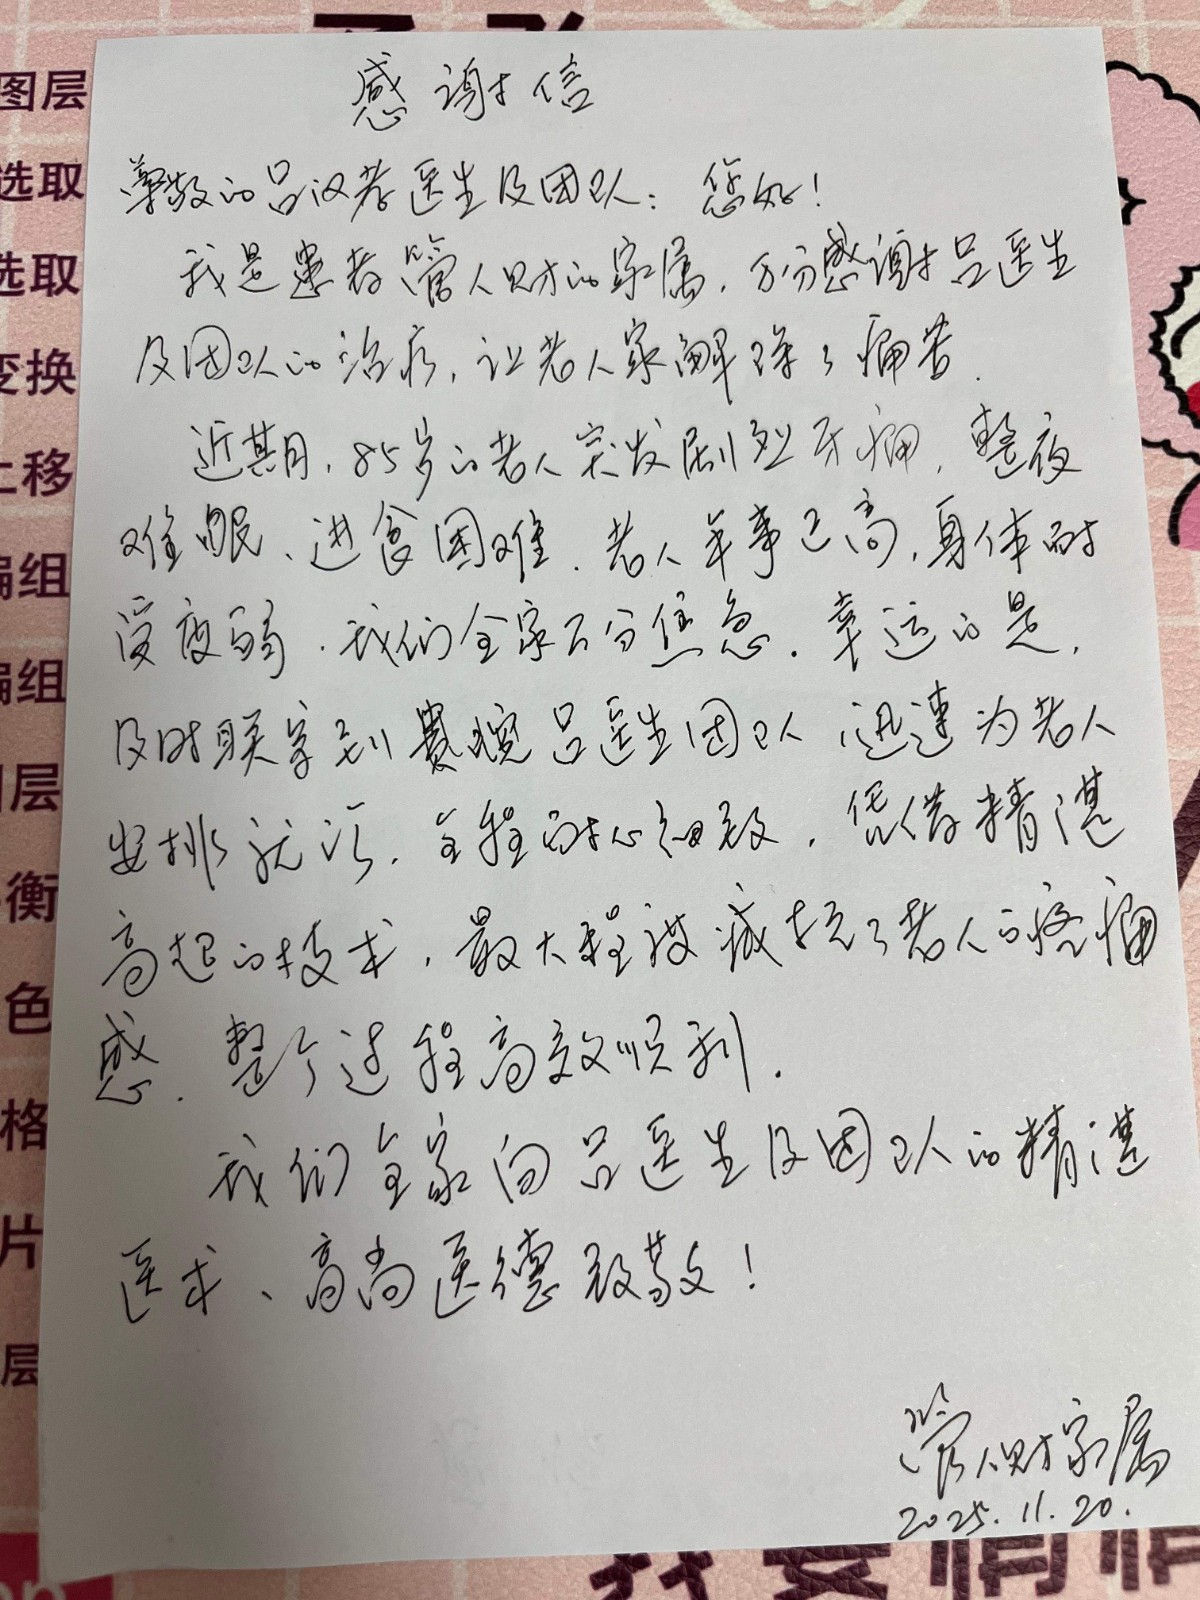 感谢信
尊敬的吕汉孝医生及团队：您好！
我是患者管人财的家属，万分感谢吕医生
及团队的治疗，让老人家解除了痛苦.
近期月，85岁的老人突发剧烈牙痛，整夜
难眠、进食困难.老人年事已高，身体耐
受度弱.我们全家万分焦急.幸运的是，
及时联系到贵院吕医生团队迅速为老人
安排就诊，全程耐心细致，凭借精湛
高超的技术，最大程度减轻了老人的疼痛
感.整个过程高效顺利.
我们全家向吕医生及团队的精湛
医术、高尚医德致敬！
管人财家属
2025.11.20.
图层
选取
选取
变换
上移
编组
编组
图层
衡
色
格
片
层